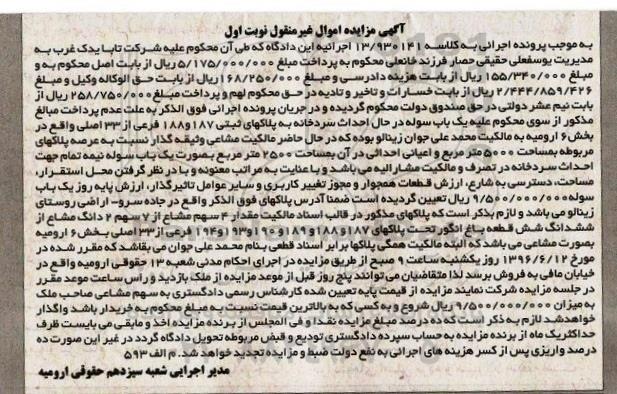 آگهی مزایده اموال غیرمنقول نوبت اول
به موجب پرونده اجرائی به کلاسه ۱۳/۹۳۰۱۴۱ اجرائیه این دادگاه که طی آن محکوم علیه شرکت تابا یدک غرب به
مدیریت یوسفعلی حقیقی حصار فرزند خانعلی محکوم به پرداخت مبلغ ۵/۱۷۵/۰۰۰/۰۰۰ ریال از بابت اصل محکوم به و
مبلغ ۱۵۵/۳۴۰/۰۰۰ ریال از بابت هزینه دادرسی و مبلغ ۱۶۸/۲۵۰/۰۰۰ ریال از بابت حق الوکاله وکیل و مبلغ
۲/۴۴۴/۸۵۹/۴۲۶ ریال از بابت خسارات و تاخیر و تادیه در حق محکوم لهم و پرداخت مبلغ ۲۵۸/۷۵۰/۰۰۰ ریال از
بابت نیم عشر دولتی در حق صندوق دولت محکوم گردیده و در جریان پرونده اجرائی فوق الذکر به علت عدم پرداخت مبالغ
مذکور از سوی محکوم علیه یک باب سوله در حال احداث سردخانه به پلاکهای ثبتی ۱۸۷و۱۸۸ فرعی از ۳۳ اصلی واقع در
بخش ۶ ارومیه به مالکیت محمد علی جوان زینالو بوده که در حال حاضر مالکیت مشاعی وثیقه گذار نسبت به عرصه پلاکهای
مربوطه بمساحت ۵۰۰۰ متر مربع و اعیانی احداثی در آن بمساحت ۲۵۰۰ متر مربع بصورت یک باب سوله نیمه تمام جهت
احداث سردخانه در تصرف و مالکیت مشارالیه می باشد و با عنایت به مراتب معنونه و با در نظر گرفتن محل استقرار،
مساحت، دسترسی به شارع، ارزش قطعات همجوار و مجوز تغییر کاربری و سایر عوامل تاثیرگذار، ارزش پایه روز یک باب
سوله ۹/۵۰۰/۰۰۰/۰۰۰ ریال تعیین گردیده است ضمنا آدرس پلاکهای فوق الذکر واقع در جاده سرو- اراضی روستای
زینالو می باشد و لازم بذکر است که پلاکهای مذکور در قالب اسناد مالکیت مقدار ۴ سهم مشاع از ۷ سهم ۲ دانگ مشاع از
ششدانگ شش قطعه باغ انگور تحت پلاکهای ۱۸۷و۱۸۸و۱۸۹و۱۹۰و۱۹۳و۱۹۴ فرعی از ۳۳ اصلی بخش ۶ ارومیه
بصورت مشاعی می باشد که البته مالکیت همگی پلاکها برابر اسناد قطعی بنام محمد علی جوان می باشد که مقرر شده در
مورخ ۱۳۹۶/۶/۱۲ روز یکشنبه ساعت ۹ صبح از طریق مزایده در اجرای احکام مدنی شعبه ۱۳ حقوقی ارومیه واقع در
خیابان مافی به فروش برسد لذا متقاضیان می توانند پنج روز قبل از موعد مزایده از ملک بازدید و راس ساعت موعد مقرر
در جلسه مزایده شرکت نمایند مزایده از قیمت پایه تعیین شده کارشناس رسمی دادگستری به سهم مشاعی صاحب ملک
به میزان ۹/۵۰۰/۰۰۰/۰۰۰ ریال شروع و به کسی که به بالاترین قیمت نسبت به مبلغ محکوم به خریدار باشد واگذار
خواهد شد لازم به ذکر است که ده درصد مبلغ مزایده نقدا و فی المجلس از برنده مزایده اخذ و مابقی می بایست ظرف
حداکثر یک ماه از برنده مزایده به حساب سپرده دادگستری تودیع و قبض مربوطه تحویل دادگاه گردد در غیر این صورت ده
درصد واریزی پس از کسر هزینه های اجرائی به نفع دولت ضبط و مزایده تجدید خواهد شد. م الف ۵۹۳
مدیر اجرایی شعبه سیزدهم حقوقی ارومیه